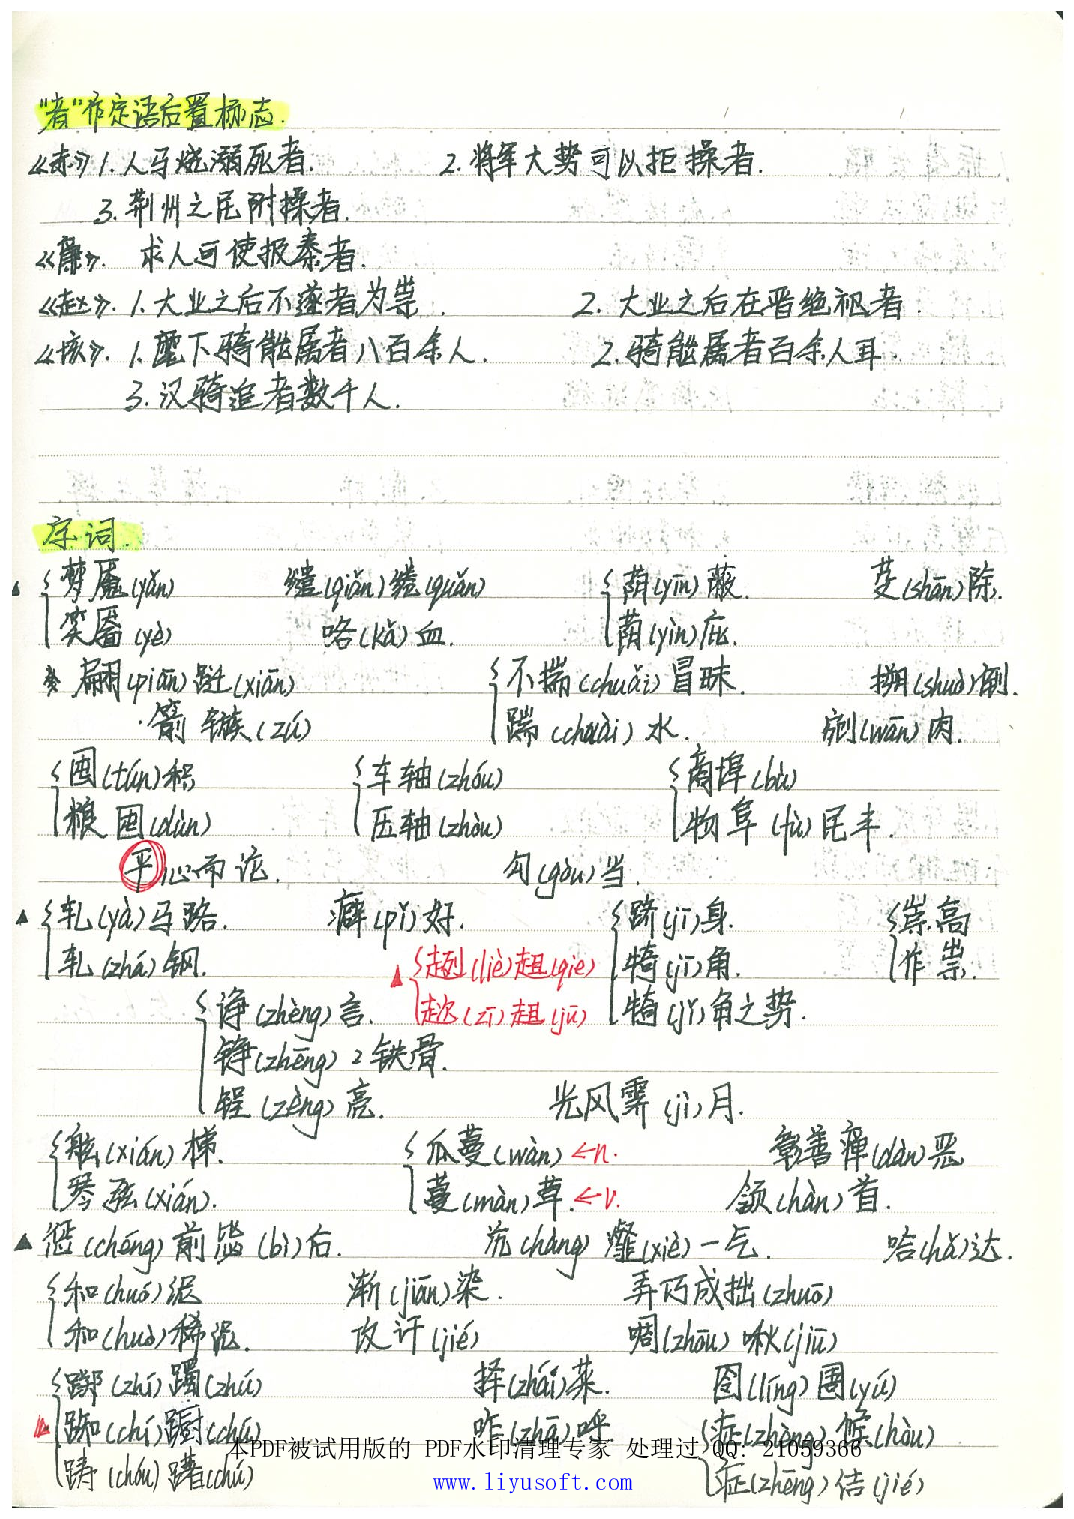 "者"作定语后置标志.
《赤》1.人马烧溺死者. 2.将军大势可以拒操者.
3.荆州之民附操者.
《廉》. 求人可使报秦者.
《赵》. 1.大业之后不遂者为祟 2. 大业之后在晋绝祀者.
《垓》. 1.麾下骑能属者八百余人. 2.骑能属者百余人耳.
3.汉骑追者数千人.
字词.
梦魇(yǎn) 缱(qiǎn)绻(quǎn) 荫(yīn)蔽. 芟(shān)除.
笑靥(yè) 咯(kǎ)血. 荫(yìn)庇.
翩(piān)跹(xiān) 不揣(chuǎi)冒昧. 搠(shuò)倒.
箭镞(zú) 踹(chuài)水. 剜(wān)肉.
囤(tún)积 车轴(zhóu) 商埠(bù)
粮囤(dùn) 压轴(zhòu) 物阜(fù)民丰.
平心而论. 勾(gòu)当.
轧(yà)马路. 癖(pǐ)好. 跻(jī)身. 崇高
轧(zhá)钢. 趔(liè)趄(qie) 犄(jī)角. 作祟.
诤(zhèng)言. 趑(zī)趄(jū) 犄(jǐ)角之势.
铮(zhēng)2铁骨.
锃(zèng)亮. 光风霁(jì)月.
舷(xián)梯. 瓜蔓(wàn)←n. 彰善瘅(dàn)恶
琴弦(xián). 蔓(màn)草.←v. 颔(hàn)首.
惩(chéng)前毖(bì)后. 沆(hàng)瀣(xiè)一气. 哈(hǎ)达.
和(huó)泥 渐(jiān)染. 弄巧成拙(zhuō)
和(huò)稀泥. 攻讦(jié) 啁(zhōu)啾(jiū)
踯(zhí)躅(zhú) 择(zhái)菜. 囹(líng)圄(yǔ)
踟(chí)蹰(chú) 咋(zhā)呼 症(zhèng)候(hòu)
本PDF被试用版的 PDF水印清理专家 处理过 QQ: 21059366
踌(chóu)躇(chú) 症(zhēng)结(jié)
www.liyusoft.com